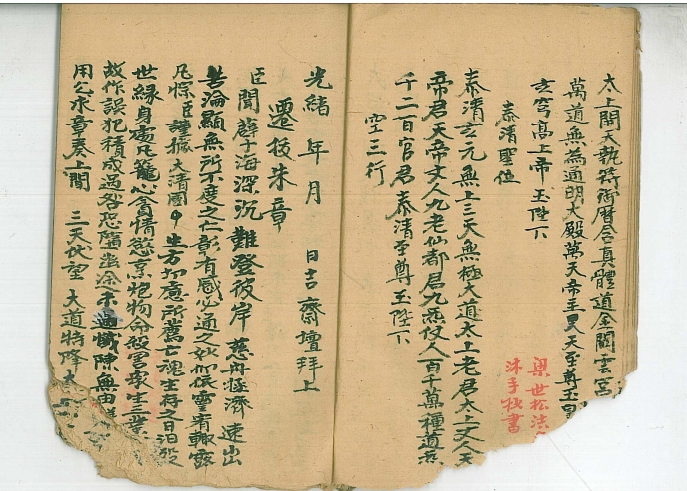 太上開天執符御曆含真體道金闕雲宮
萬道無為通明大殿萬天帝主昊天至尊玉皇
玄穹高上帝 玉陛下
泰清聖位
泰清玄元無上三天無極大道太上老君太上丈人天
帝君天帝丈人九老仙都君九炁仗人百千萬種道炁
千二百官君泰清至尊玉陛下
空三行
梁世松
沐手抄書
光緒 年 月 日吉齋壇拜上
遷拔朱章
臣聞 海深沉難登彼岸慈舟拯濟速出
苦淪顯無所不度之仁彰有感必通之妙 依靈宥輙露
凡悰臣謹據大清國中 生方切處所薦亡魂生存之日汩没
世緣身處凡籠心貪情慾烹炮物命殺害衆生三業
故作誤犯積成過咎恐墮幽淪未 懺陳無由
用乞朱章奏上聞 三天伏望 大道特降